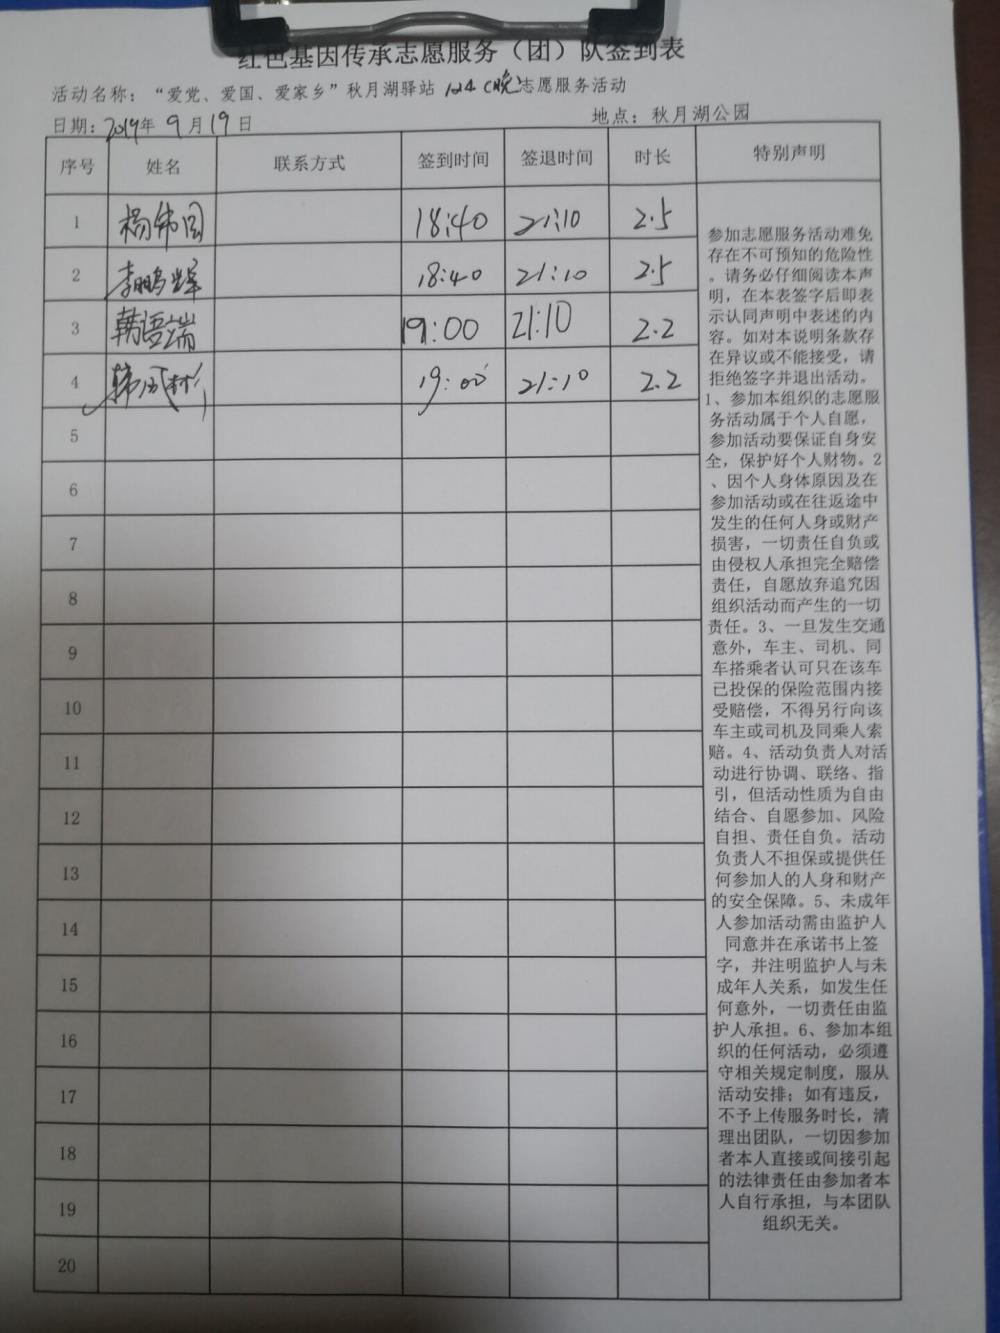 红色基因传承志愿服务（团）队签到表
活动名称：“爱党、爱国、爱家乡”秋月湖驿站 124（晚）志愿服务活动
日期：2019年 9月19日 地点：秋月湖公园
序号 姓名 联系方式 签到时间 签退时间 时长 特别声明
1 杨伟国 18:40 21:10 2.5
2 李鹏辉 18:40 21:10 2.5
3 韩语端 19:00 21:10 2.2
4 韩风彬 19:00 21:10 2.2
5
6
7
8
9
10
11
12
13
14
15
16
17
18
19
20
参加志愿服务活动难免
存在不可预知的危险性
。请务必仔细阅读本声
明，在本表签字后即表
示认同声明中表述的内
容。如对本说明条款存
在异议或不能接受，请
拒绝签字并退出活动。
1、参加本组织的志愿服
务活动属于个人自愿，
参加活动要保证自身安
全，保护好个人财物。2
、因个人身体原因及在
参加活动或在往返途中
发生的任何人身或财产
损害，一切责任自负或
由侵权人承担完全赔偿
责任，自愿放弃追究因
组织活动而产生的一切
责任。3、一旦发生交通
意外，车主、司机、同
车搭乘者认可只在该车
已投保的保险范围内接
受赔偿，不得另行向该
车主或司机及同乘人索
赔。4、活动负责人对活
动进行协调、联络、指
引，但活动性质为自由
结合、自愿参加、风险
自担、责任自负。活动
负责人不担保或提供任
何参加人的人身和财产
的安全保障。5、未成年
人参加活动需由监护人
同意并在承诺书上签
字，并注明监护人与未
成年人关系，如发生任
何意外，一切责任由监
护人承担。6、参加本组
织的任何活动，必须遵
守相关规定制度，服从
活动安排；如有违反，
不予上传服务时长，清
理出团队，一切因参加
者本人直接或间接引起
的法律责任由参加者本
人自行承担，与本团队
组织无关。